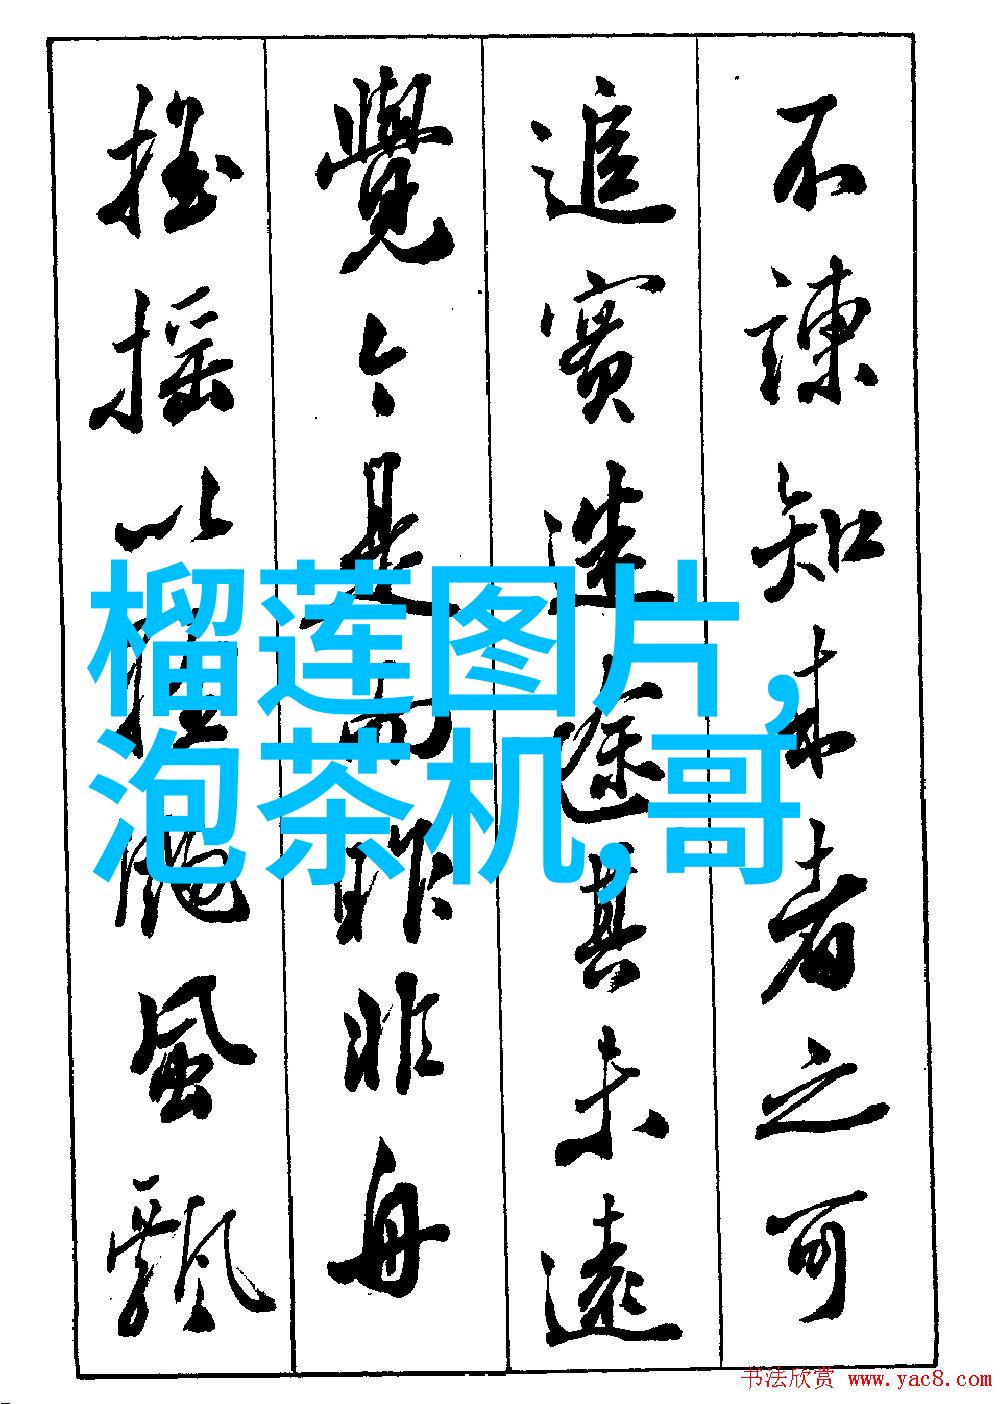 不諫知来者之可
追實迷途其未遠
覺今是而昨非舟
摇摇以輕颺風飄
榴莲图片,
泡茶机,哥
书法欣赏 www.yac8.com